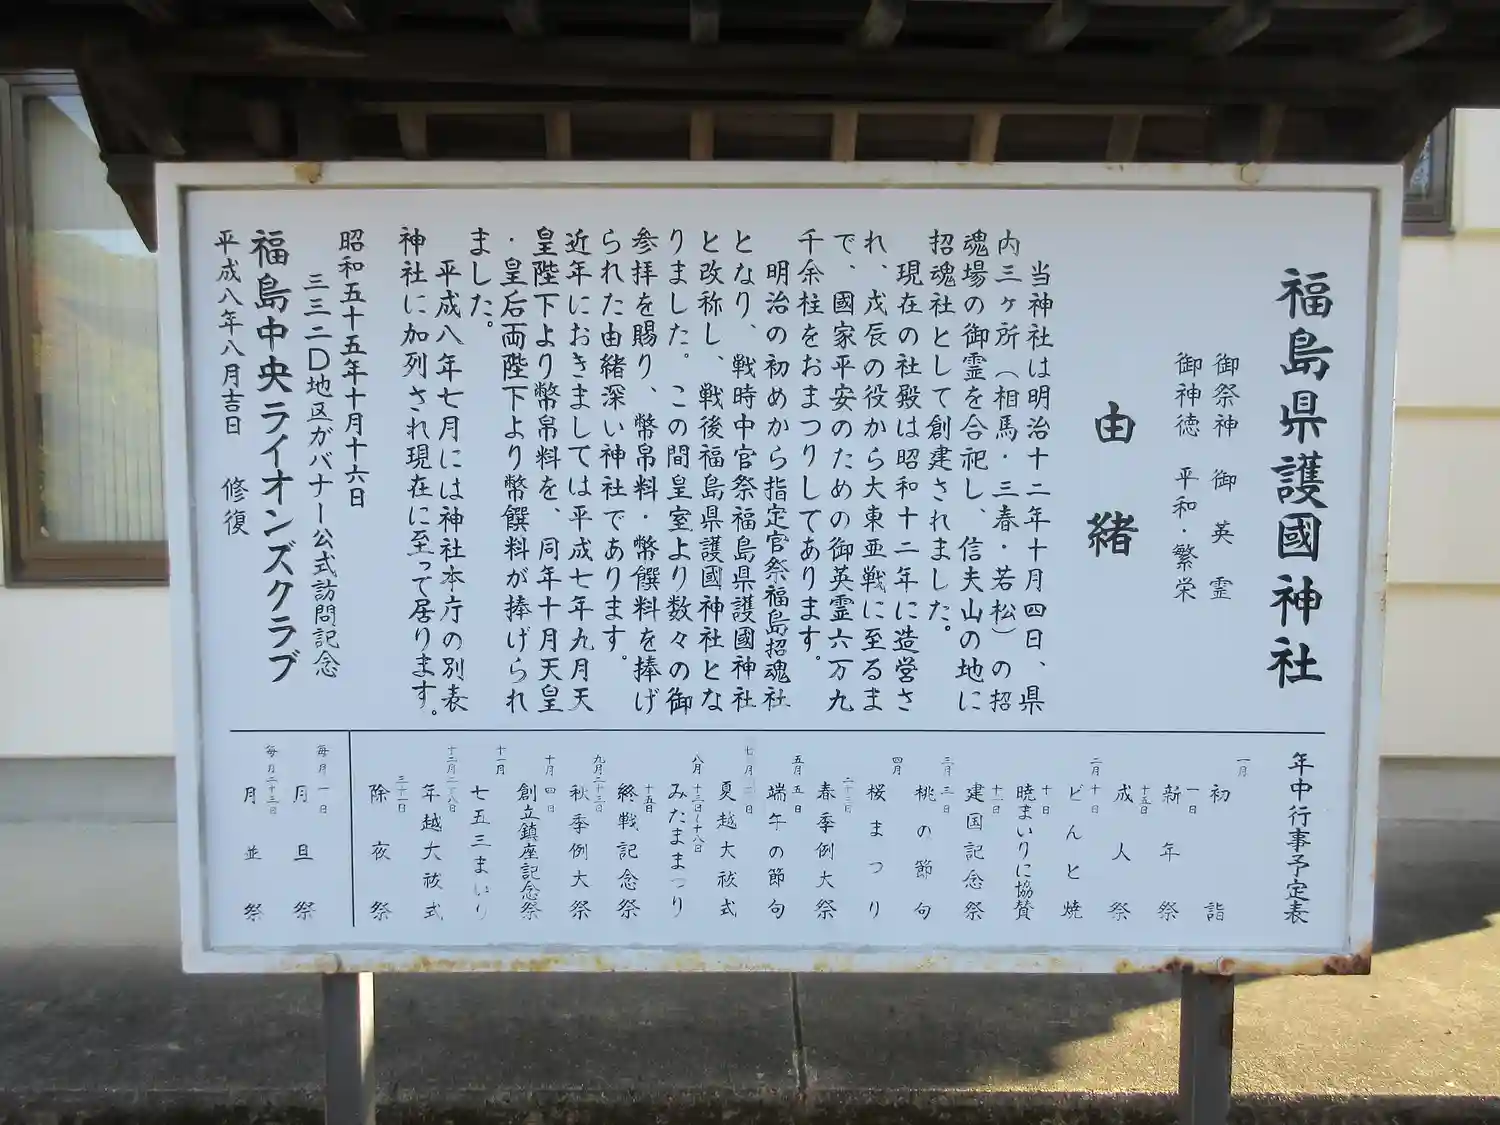 福島県護國神社
御祭神 御英霊
御神徳 平和・繁栄
由緒
当神社は明治十二年十月四日、県
内三ヶ所（相馬・三春・若松）の招
魂場の御霊を合祀し、信夫山の地に
招魂社として創建されました。
現在の社殿は昭和十二年に造営さ
れ、戊辰の役から大東亜戦に至るま
で、國家平安のための御英霊六万九
千余柱をおまつりしてあります。
明治の初めから指定官祭福島招魂社
となり、戦時中官祭福島県護國神社
と改称し、戦後福島県護國神社とな
りました。この間皇室より数々の御
参拝を賜り、幣帛料・幣饌料を捧げ
られた由緒深い神社であります。
近年におきましては平成七年九月天
皇陛下より幣帛料を、同年十月天皇
・皇后両陛下より幣饌料が捧げられ
ました。
平成八年七月には神社本庁の別表
神社に加列され現在に至って居ります。
昭和五十五年十月十六日
三三二D地区ガバナー公式訪問記念
福島中央ライオンズクラブ
平成八年八月吉日 修復
年中行事予定表
一月 初詣
一日 新年祭
十五日 成人祭
二月十日 どんと焼
十日 暁まいりに協賛
十一日 建国記念祭
三月三日 桃の節句
四月 桜まつり
二十三日 春季例大祭
五月五日 端午の節句
七月 日 夏越大祓式
八月 十三日〜十八日 みたままつり
十五日 終戦記念祭
九月二十三日 秋季例大祭
十月四日 創立鎮座記念祭
十一月 七五三まいり
十二月二十八日 年越大祓式
三十一日 除夜祭
毎月一日 月旦祭
毎月二十三日 月並祭